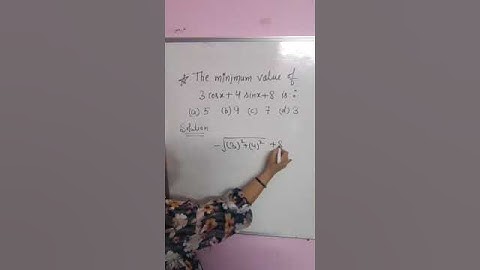 ☆ The minimum value of
3 cosx + 4 sinx + 8 is :
(a) 5 (b) 9 (c) 7 (d) 3
Solution
-√(3)²+(4)² + 8